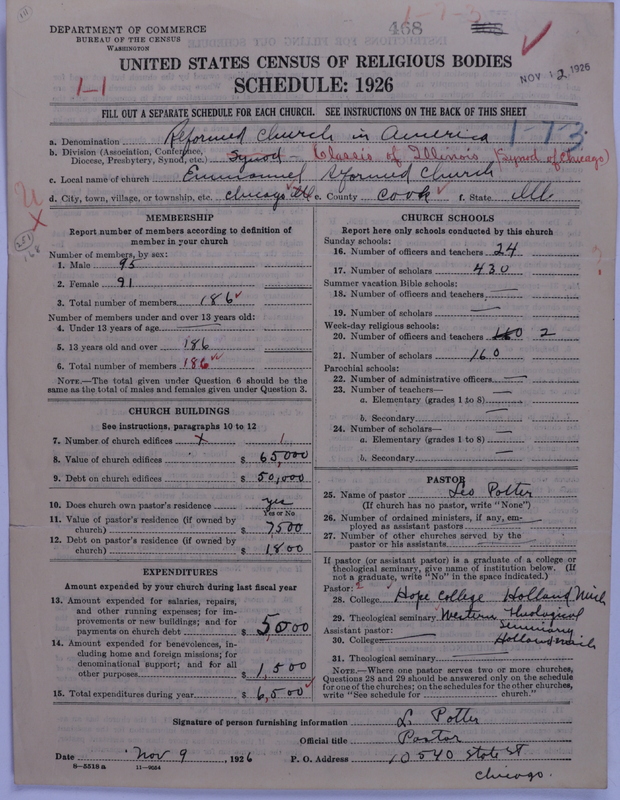 111
DEPARTMENT OF COMMERCE
BUREAU OF THE CENSUS
WASHINGTON
468
1-7-3
NOV 12 1926
UNITED STATES CENSUS OF RELIGIOUS BODIES
SCHEDULE: 1926
1-1
FILL OUT A SEPARATE SCHEDULE FOR EACH CHURCH. SEE INSTRUCTIONS ON THE BACK OF THIS SHEET
a. Denomination Reformed Church in America 1-73
b. Division (Association, Conference, Diocese, Presbytery, Synod, etc.) Synod - Classis of Illinois (Synod of Chicago)
c. Local name of church Emmanuel Reformed Church
d. City, town, village, or township, etc. Chicago Ill e. County Cook f. State Ill.
MEMBERSHIP
Report number of members according to definition of
member in your church
Number of members, by sex:
1. Male 95
2. Female 91
3. Total number of members 186
Number of members under and over 13 years old:
4. Under 13 years of age
5. 13 years old and over 186
6. Total number of members 186
NOTE.—The total given under Question 6 should be the
same as the total of males and females given under Question 3.
CHURCH BUILDINGS
See instructions, paragraphs 10 to 12
7. Number of church edifices x 1
8. Value of church edifices $ 65,000
9. Debt on church edifices $ 50,000
10. Does church own pastor's residence yes
Yes or No
11. Value of pastor's residence (if owned by
church) $ 7500
12. Debt on pastor's residence (if owned by
church) $ 1800
EXPENDITURES
Amount expended by your church during last fiscal year
13. Amount expended for salaries, repairs,
and other running expenses; for im-
provements or new buildings; and for
payments on church debt $ 5000
14. Amount expended for benevolences, in-
cluding home and foreign missions; for
denominational support; and for all
other purposes $ 1,500
15. Total expenditures during year $ 6,500
CHURCH SCHOOLS
Report here only schools conducted by this church
Sunday schools:
16. Number of officers and teachers 24
17. Number of scholars 430
Summer vacation Bible schools:
18. Number of officers and teachers
19. Number of scholars
Week-day religious schools:
20. Number of officers and teachers 160 2
21. Number of scholars 160
Parochial schools:
22. Number of administrative officers
23. Number of teachers—
a. Elementary (grades 1 to 8)
b. Secondary
24. Number of scholars—
a. Elementary (grades 1 to 8)
b. Secondary
PASTOR
25. Name of pastor Leo Potter
(If church has no pastor, write "None")
26. Number of ordained ministers, if any, em-
ployed as assistant pastors
27. Number of other churches served by the
pastor or his assistants
If pastor (or assistant pastor) is a graduate of a college or
theological seminary, give name of institution below. (If
not a graduate, write "No" in the space indicated.)
Pastor:
28. College Hope College Holland Mich
29. Theological seminary Western Theological
Seminary
Assistant pastor:
30. College Holland Mich
31. Theological seminary
NOTE.—Where one pastor serves two or more churches,
Questions 28 and 29 should be answered only on the schedule
for one of the churches; on the schedules for the other churches,
write "See schedule for church."
Signature of person furnishing information L. Potter
Official title Pastor
Date Nov 9, 1926 P. O. Address 10540 State St
Chicago.
8—5518 a 11—9024